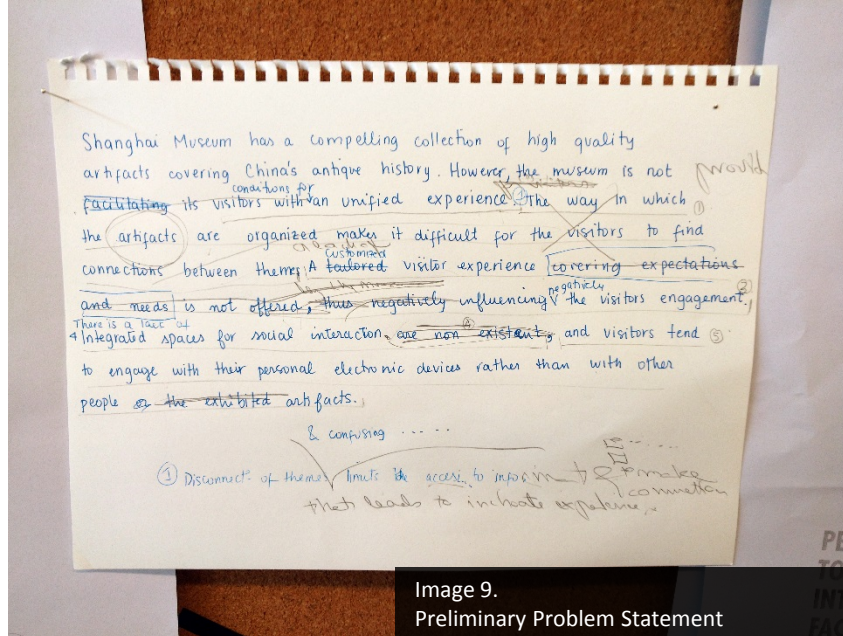 Shanghai Museum has a compelling collection of high quality
artifacts covering China's antique history. However, the museum is not provid
conditions for
facilitating its visitors with an unified experience. 1 The way in which 1
the artifacts are organized makes it difficult for the visitors to find
customized
connections between them. A tailored visitor experience covering expectations
negatively
and needs is not offered, thus negatively influencing the visitors engagement. 2
There is a lack of
4 Integrated spaces for social interaction, are non existent, and visitors tend 5
to engage with their personal electronic devices rather than with other
people or the exhibited artifacts.
& confusing .....
1 Disconnect of themes limits the access to inform & to make
connection
that leads to
PE
TO
INT
FAC
Image 9.
Preliminary Problem Statement